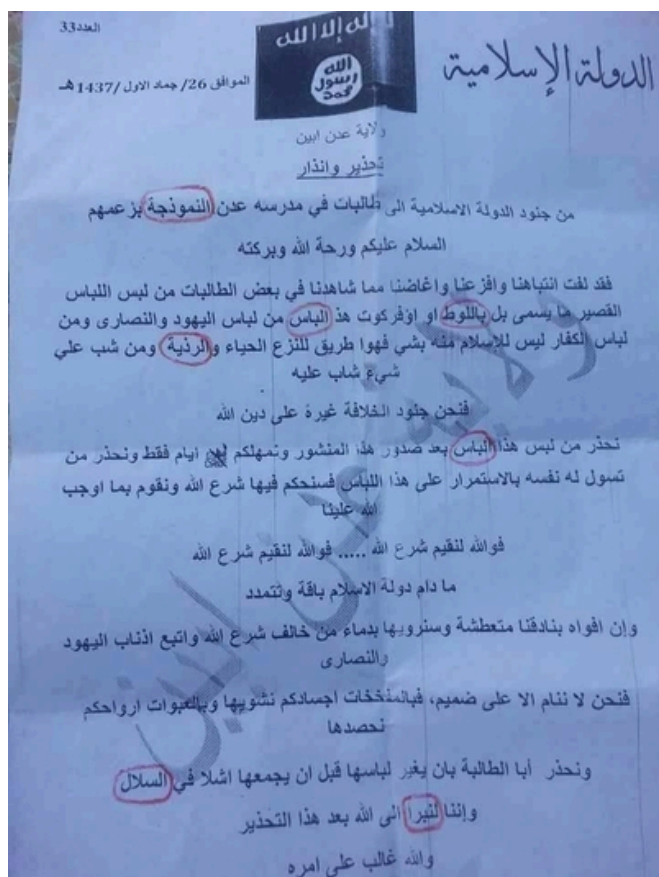 العدد33
الدولة الإسلامية
لا إله إلا الله
الله
رسول
محمد
الموافق 26/ جماد الاول /1437هـ
ولاية عدن ابين
تحذير وانذار
من جنود الدولة الاسلامية الى طالبات في مدرسه عدن النموذجة بزعمهم
السلام عليكم ورحة الله وبركته
فقد لفت انتباهنا وافزعنا واغاضنا مما شاهدنا في بعض الطالبات من لبس اللباس
القصير ما يسمى بل باللوط او اوفركوت هذ الباس من لباس اليهود والنصارى ومن
لباس الكفار ليس للاسلام منه بشي فهوا طريق للنزع الحياء والرذية ومن شب علي
شيء شاب عليه
فنحن جنود الخلافة غيرة على دين الله
نحذر من لبس هذا الباس بعد صدور هذ المنشور ونمهلكم ايام فقط ونحذر من
تسول له نفسه بالاستمرار على هذا اللباس فسنحكم فيها شرع الله ونقوم بما اوجب
الله علينا
فوالله لنقيم شرع الله ..... فوالله لنقيم شرع الله
ما دام دولة الاسلام باقة وتتمدد
وإن افواه بنادقنا متعطشة وسنرويها بدماء من خالف شرع الله واتبع اذناب اليهود
والنصارى
فنحن لا ننام الا على ضميم، فبالمفخخات اجسادكم نشويها وبالعبوات ارواحكم
نحصدها
ونحذر أبا الطالبة بان يغير لباسها قبل ان يجمعها اشلا في السلال
وإننا لنبرا الى الله بعد هذا التحذير
والله غالب على امره
ولاية عدن ابين